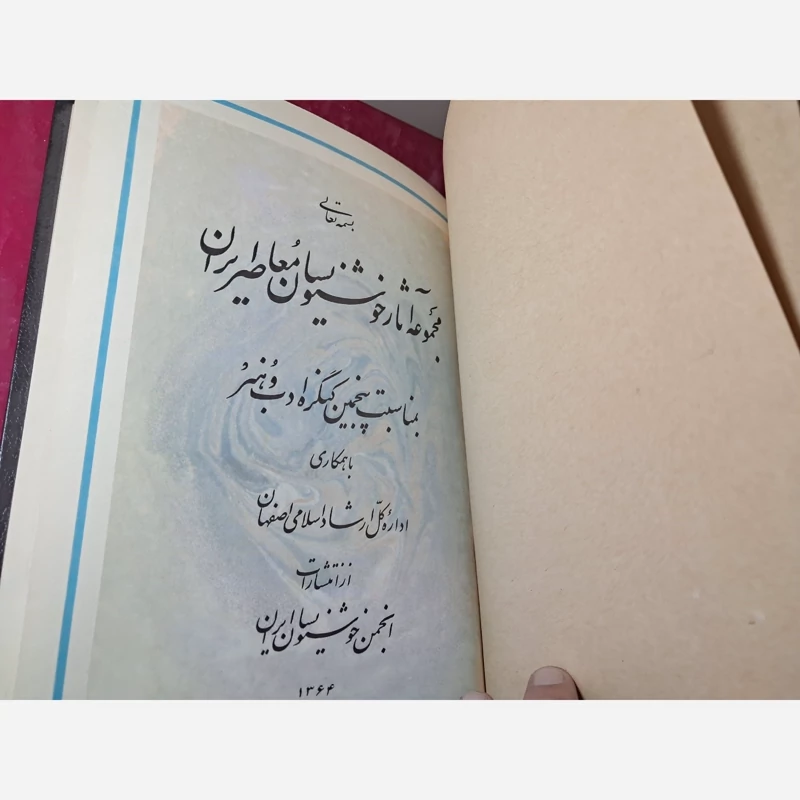 بسمه تعالی
مجموعه آثار خوشنویسان معاصر ایران
بمناسبت پنجمین کنگره ادب و هنر
با همکاری
ادارهٔ کلّ ارشاد اسلامی اصفهان
از انتشارات
انجمن خوشنویسان ایران
۱۳۶۴